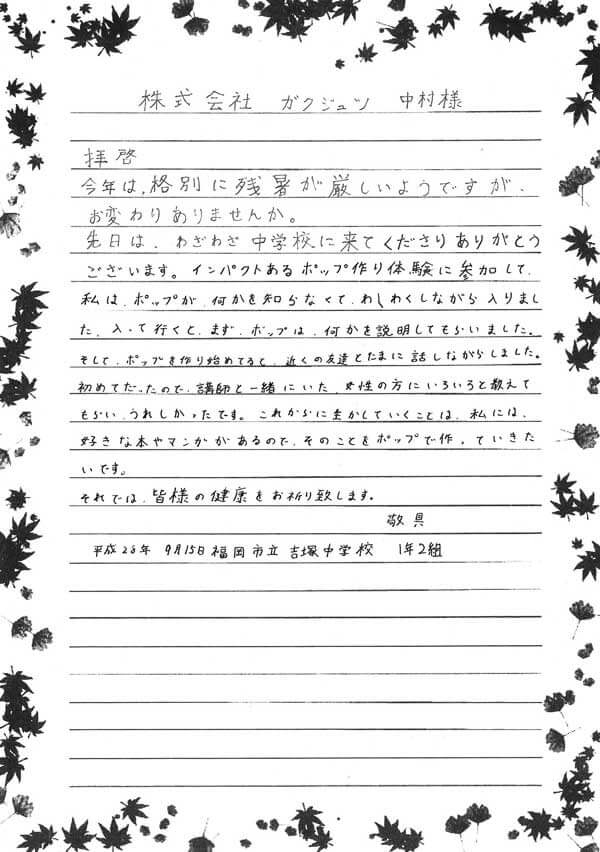 株式会社 ガクジュツ 中村様
拝啓
今年は、格別に残暑が厳しいようですが、
お変わりありませんか。
先日は、わざわざ中学校に来てくださりありがとう
ございます。インパクトあるポップ作り体験に参加して、
私は、ポップが、何かを知らなくて、わくわくしながら入りまし
た。入って行くと、まず、ポップは、何かを説明してもらいました。
そして、ポップを作り始めてると、近くの友達とたまに話しながらしました。
初めてだったので、講師と一緒にいた、女性の方にいろいろと教えて
もらい、うれしかったです。これからに生かしていくことは、私には、
好きな本やマンガがあるので、そのことをポップで作っていきた
いです。
それでは、皆様の健康をお祈り致します。
敬具
平成26年 9月15日 福岡市立 吉塚中学校 1年2組